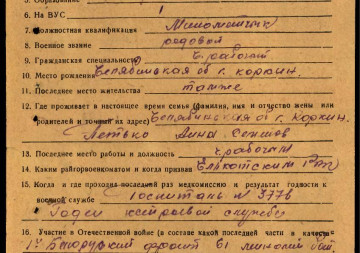 6. На ВУС 1
7. Должностная квалификация Минометчик
8. Военное звание рядовой
9. Гражданская специальность рабочий
10. Место рождения Челябинская об г. Коркин.
11. Последнее место жительства также
12. Где проживает в настоящее время семья (фамилия, имя и отчество жены или
родителей и точный их адрес) Челябинская об г. Коркин.
Летько Анна
13. Последнее место работы и должность рабочим
14. Каким райгорвоенкоматом и когда призван РВК
15. Когда и где проходил последний раз медкомиссию и результат годности к
военной службе Госпиталь № 3776
Годен к строевой службе
16. Участие в Отечественной войне (в составе какой последней части и в качестве
1й Белорусский фронт 61